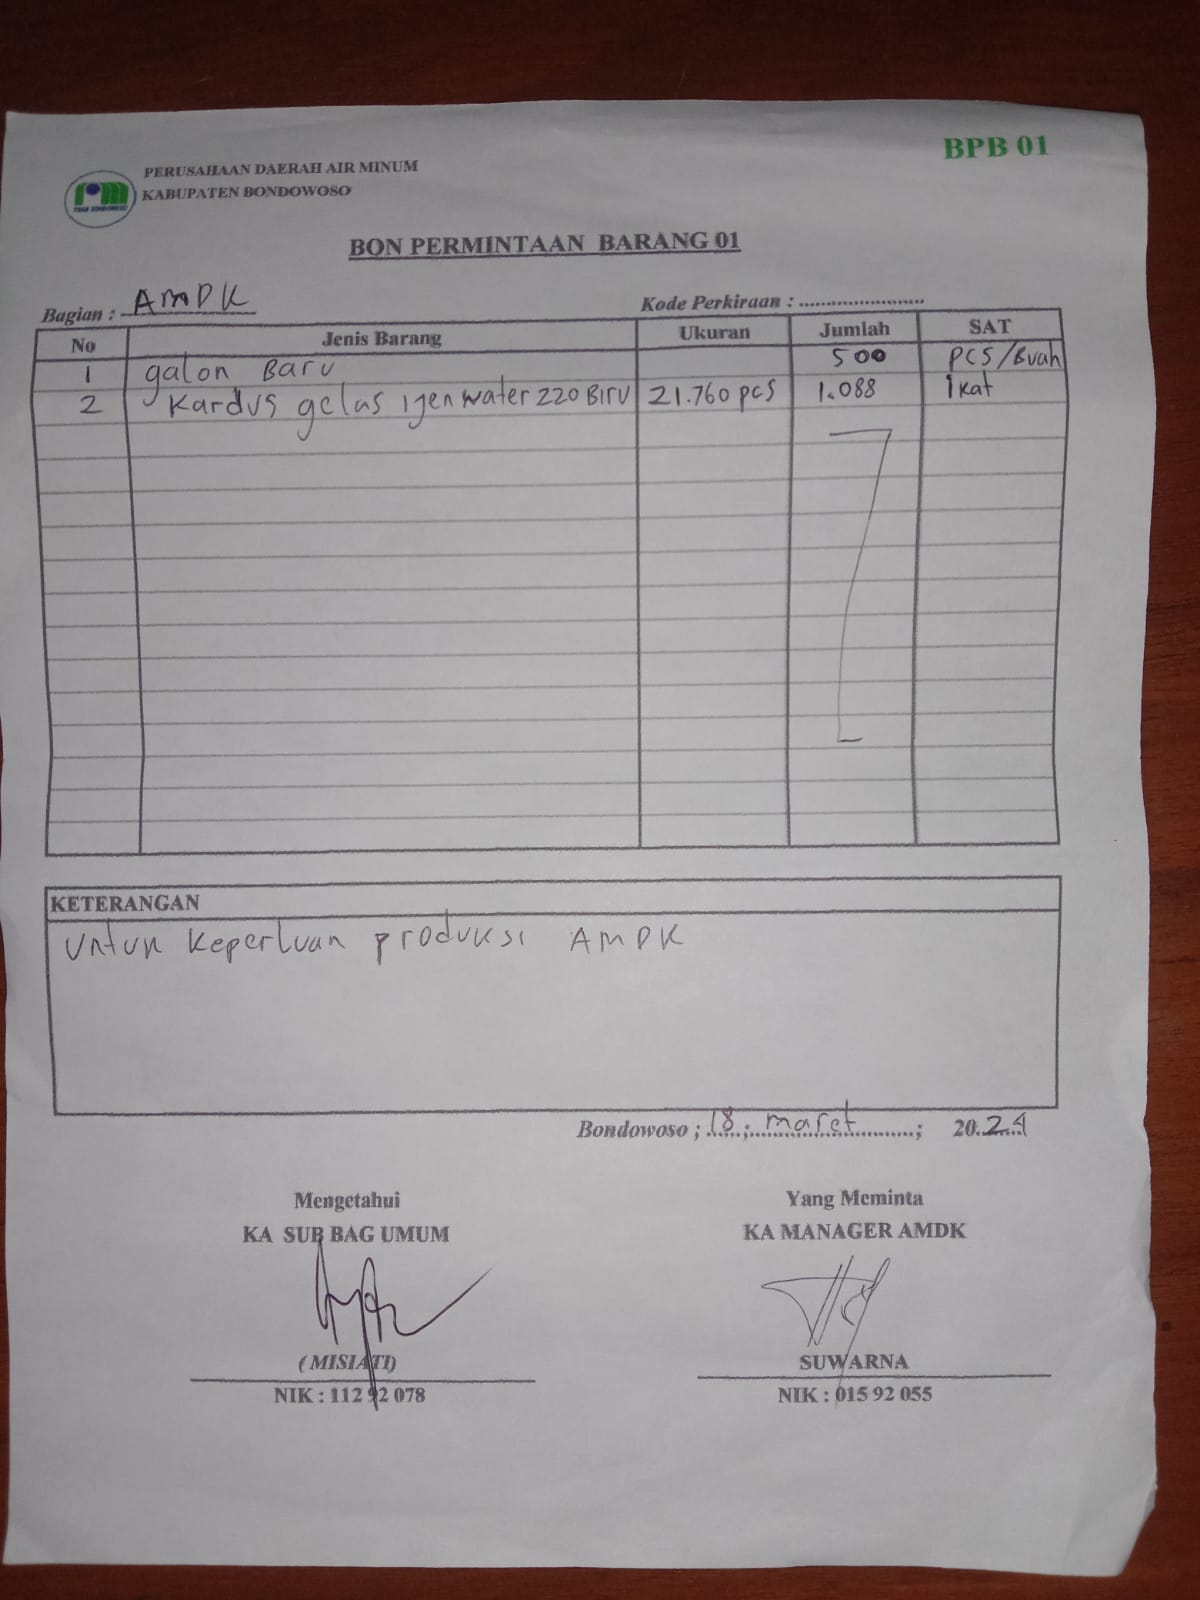 BPB 01
PERUSAHAAN DAERAH AIR MINUM
KABUPATEN BONDOWOSO
BON PERMINTAAN BARANG 01
Bagian : AMDK
Kode Perkiraan : ........................
No Jenis Barang Ukuran Jumlah SAT
1 galon Baru 500 PCS/Buah
2 Kardus gelas ijen water 220 Biru 21.760 pcs 1.088 ikat
KETERANGAN
Untuk Keperluan produksi AMDK
Bondowoso ; 18 ; maret ; 2024
Mengetahui Yang Meminta
KA SUB BAG UMUM KA MANAGER AMDK
(MISIATI) SUWARNA
NIK : 112 92 078 NIK : 015 92 055